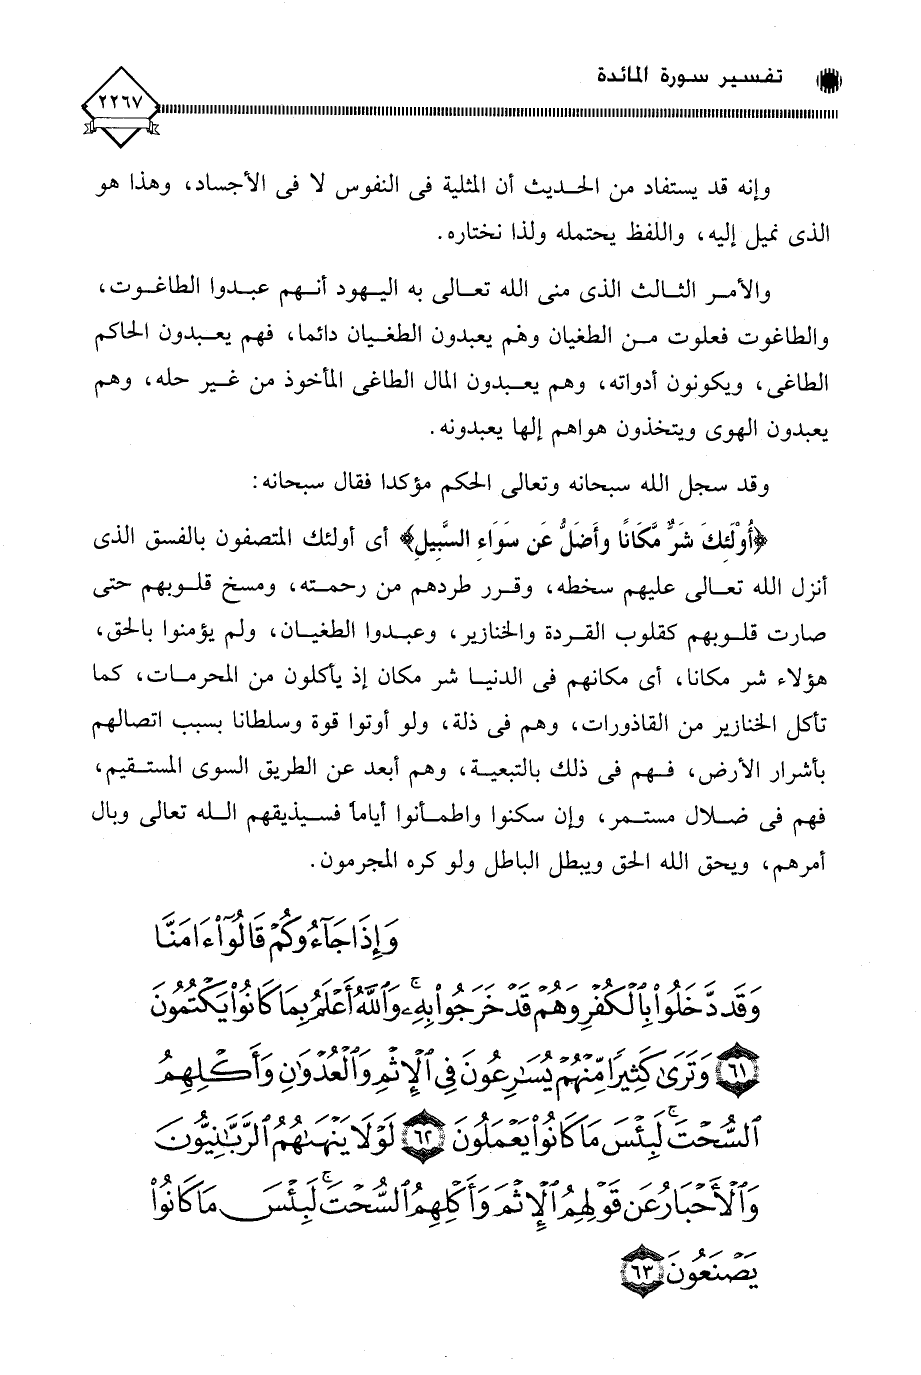 تفسير سورة المائدة
٢٢٦٧
وإنه قد يستفاد من الحديث أن المثلية فى النفوس لا فى الأجساد، وهذا هو
الذى نميل إليه، واللفظ يحتمله ولذا نختاره.
والأمر الثالث الذى منى الله تعالى به اليهود أنهم عبدوا الطاغوت،
والطاغوت فعلوت من الطغيان وهم يعبدون الطغيان دائما، فهم يعبدون الحاكم
الطاغى، ويكونون أدواته، وهم يعبدون المال الطاغى المأخوذ من غير حله، وهم
يعبدون الهوى ويتخذون هواهم إلها يعبدونه.
وقد سجل الله سبحانه وتعالى الحكم مؤكدا فقال سبحانه:
﴿أُوْلَئِكَ شَرٌّ مَّكَانًا وأَضَلُّ عَن سَوَاءِ السَّبِيلِ﴾ أى أولئك المتصفون بالفسق الذى
أنزل الله تعالى عليهم سخطه، وقرر طردهم من رحمته، ومسخ قلوبهم حتى
صارت قلوبهم كقلوب القردة والخنازير، وعبدوا الطغيان، ولم يؤمنوا بالحق،
هؤلاء شر مكانا، أى مكانهم فى الدنيا شر مكان إذ يأكلون من المحرمات، كما
تأكل الخنازير من القاذورات، وهم فى ذلة، ولو أوتوا قوة وسلطانا بسبب اتصالهم
بأشرار الأرض، فهم فى ذلك بالتبعية، وهم أبعد عن الطريق السوى المستقيم،
فهم فى ضلال مستمر، وإن سكنوا واطمأنوا أياماً فسيذيقهم الله تعالى وبال
أمرهم، ويحق الله الحق ويبطل الباطل ولو كره المجرمون.
وَإِذَا جَآءُوكُمْ قَالُوٓا۟ ءَامَنَّا
وَقَد دَّخَلُوا۟ بِٱلْكُفْرِ وَهُمْ قَدْ خَرَجُوا۟ بِهِۦ ۚ وَٱللَّهُ أَعْلَمُ بِمَا كَانُوا۟ يَكْتُمُونَ
﴿٦١﴾ وَتَرَىٰ كَثِيرًا مِّنْهُمْ يُسَٰرِعُونَ فِى ٱلْإِثْمِ وَٱلْعُدْوَٰنِ وَأَكْلِهِمُ
ٱلسُّحْتَ ۚ لَبِئْسَ مَا كَانُوا۟ يَعْمَلُونَ ﴿٦٢﴾ لَوْلَا يَنْهَىٰهُمُ ٱلرَّبَّٰنِيُّونَ
وَٱلْأَحْبَارُ عَن قَوْلِهِمُ ٱلْإِثْمَ وَأَكْلِهِمُ ٱلسُّحْتَ ۚ لَبِئْسَ مَا كَانُوا۟
يَصْنَعُونَ ﴿٦٣﴾